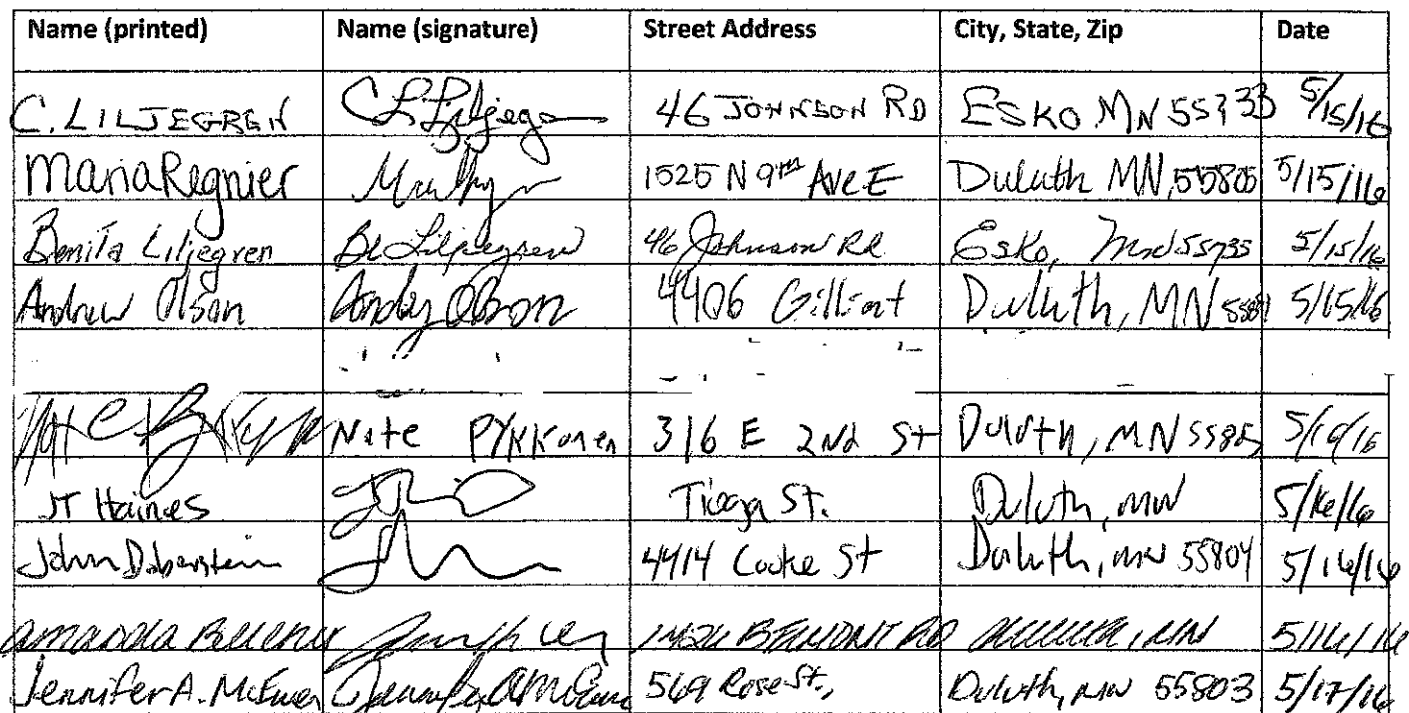 Name (printed) Name (signature) Street Address City, State, Zip Date
C. LILJEGREN 46 JOHNSON RD ESKO MN 55733 5/15/16
Maria Regnier 1525 N 9th Ave E Duluth MN, 55805 5/15/16
Benita Liljegren Liljegren 46 Johnson Rd Esko, Mn 55733 5/15/16
Andrew Olson Andy Olson 4406 Gilliat Duluth, MN 5/15/16
Nate PYKKonen 316 E 2nd St Duluth, MN 55805 5/16/16
JT Haines Tioga St. Duluth, MN 5/16/16
John Doberstein 4414 Cooke St Duluth, MN 55804 5/16/16
amanda BELMONT RD MN 5/16/16
Jennifer A. McEwen Jennifer A McEwen 569 Rose St., Duluth, MN 55803 5/17/16